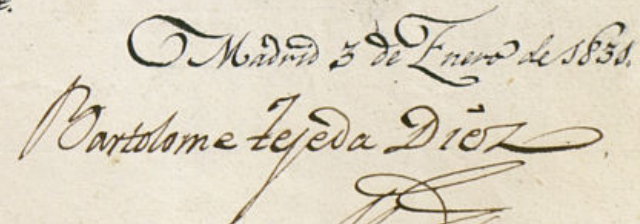 Madrid 3 de Enero de 1831.
Bartolome Tejeda Diez